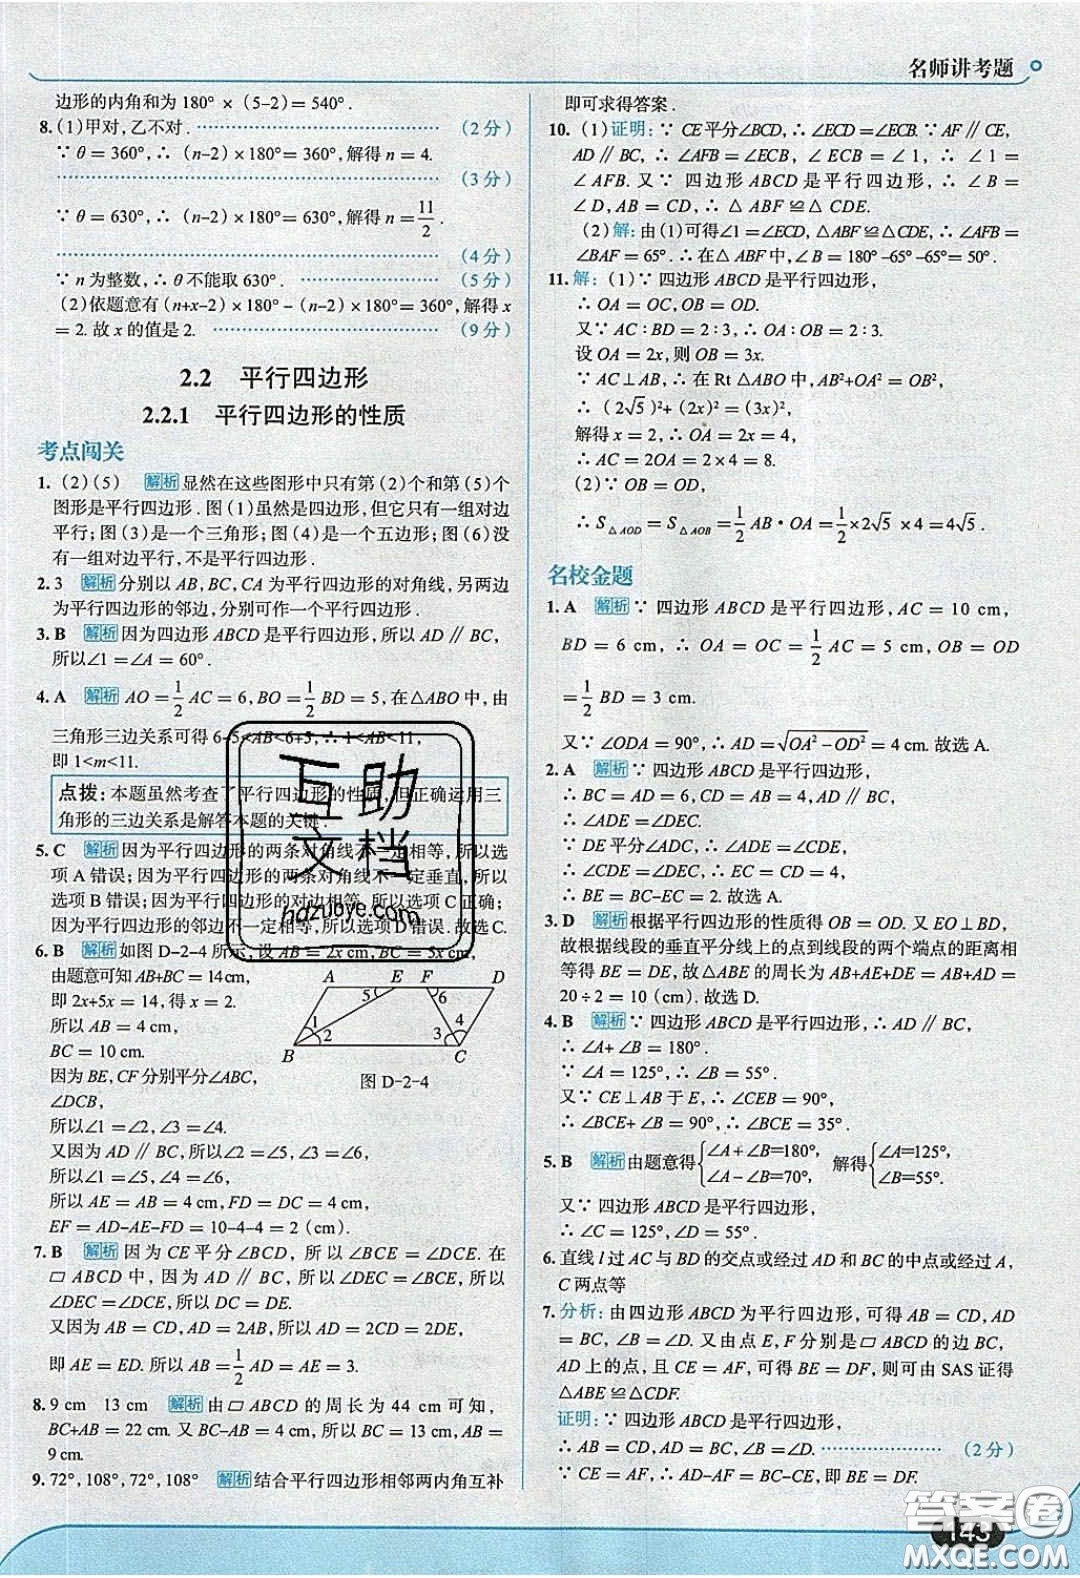 名师讲考题
边形的内角和为180°×(5-2)=540°.
8.(1)甲对,乙不对. (2分)
∵θ=360°,∴(n-2)×180°=360°,解得n=4.
(3分)
∵θ=630°,∴(n-2)×180°=630°,解得n=11/2.
(4分)
∵n为整数,∴θ不能取630°. (5分)
(2)依题意有(n+x-2)×180°-(n-2)×180°=360°,解得x
=2.故x的值是2. (9分)
2.2 平行四边形
2.2.1 平行四边形的性质
考点闯关
1.(2)(5) 解析 显然在这些图形中只有第(2)个和第(5)个
图形是平行四边形.图(1)虽然是四边形,但它只有一组对边
平行;图(3)是一个三角形;图(4)是一个五边形;图(6)没
有一组对边平行,不是平行四边形.
2.3 解析 分别以AB,BC,CA为平行四边形的对角线,另两边
为平行四边形的邻边,分别可作一个平行四边形.
3.B 解析 因为四边形ABCD是平行四边形,所以AD∥BC,
所以∠1=∠A=60°.
4.A 解析 AO=1/2AC=6,BO=1/2BD=5,在△ABO中,由
三角形三边关系可得6-5<AB<6+5,∴1<AB<11,
即1<m<11.
点拨:本题虽然考查了平行四边形的性质,但正确运用三
角形的三边关系是解答本题的关键.
5.C 解析 因为平行四边形的两条对角线不一定相等,所以选
项A错误;因为平行四边形的两条对角线不一定垂直,所以
选项B错误;因为平行四边形的对边相等,所以选项C正确;
因为平行四边形的邻边不一定相等,所以选项D错误.故选C.
6.B 解析 如图D-2-4所示,设AB=2x cm,BC=5x cm,
由题意可知AB+BC=14cm,
即2x+5x=14,得x=2.
所以AB=4 cm,
BC=10 cm.
因为BE,CF分别平分∠ABC,
∠DCB,
A E F D
5 6
1 2 3 4
B C
图D-2-4
所以∠1=∠2,∠3=∠4.
又因为AD∥BC,所以∠2=∠5,∠3=∠6,
所以∠1=∠5,∠4=∠6.
所以AE=AB=4 cm,FD=DC=4 cm,
EF=AD-AE-FD=10-4-4=2(cm).
7.B 解析 因为CE平分∠BCD,所以∠BCE=∠DCE.在
▱ABCD中,因为AD∥BC,所以∠DEC=∠BCE,所以
∠DEC=∠DCE,所以DC=DE.
又因为AB=CD,AD=2AB,所以AD=2CD=2DE,
即AE=ED.所以AB=1/2AD=AE=3.
8.9 cm 13 cm 解析 由▱ABCD的周长为44 cm可知,
BC+AB=22 cm.又∵BC-AB=4 cm,∴BC=13 cm,AB=
9 cm.
9.72°,108°,72°,108° 解析 结合平行四边形相邻两内角互补
即可求得答案.
10.(1)证明:∵CE平分∠BCD,∴∠ECD=∠ECB.∵AF∥CE,
AD∥BC,∴∠AFB=∠ECB,∠ECB=∠1,∴∠1=
∠AFB.又∵四边形ABCD是平行四边形,∴∠B=
∠D,AB=CD,∴△ABF≌△CDE.
(2)解:由(1)可得∠1=∠ECD,△ABF≌△CDE,∴∠AFB=
∠BAF=65°.∴在△ABF中,∠B=180°-65°-65°=50°.
11.解:(1)∵四边形ABCD是平行四边形,
∴OA=OC,OB=OD.
又∵AC:BD=2:3,∴OA:OB=2:3.
设OA=2x,则OB=3x.
∵AC⊥AB,∴在Rt△ABO中,AB²+OA²=OB²,
∴(2√5)²+(2x)²=(3x)²,
解得x=2,∴OA=2x=4,
∴AC=2OA=2×4=8.
(2)∵OB=OD,
∴S△AOD=S△AOB=1/2AB·OA=1/2×2√5×4=4√5.
名校金题
1.A 解析 ∵四边形ABCD是平行四边形,AC=10 cm,
BD=6 cm,∴OA=OC=1/2AC=5 cm,OB=OD
=1/2BD=3 cm.
又∵∠ODA=90°,∴AD=√(OA²-OD²)=4 cm.故选A.
2.A 解析 ∵四边形ABCD是平行四边形,
∴BC=AD=6,CD=AB=4,AD∥BC,
∴∠ADE=∠DEC.
∵DE平分∠ADC,∴∠ADE=∠CDE,
∴∠CDE=∠DEC,∴EC=CD=4,
∴BE=BC-EC=2.故选A.
3.D 解析 根据平行四边形的性质得OB=OD.又EO⊥BD,
故根据线段的垂直平分线上的点到线段的两个端点的距离相
等得BE=DE,故△ABE的周长为AB+AE+DE=AB+AD=
20÷2=10(cm).故选D.
4.B 解析 ∵四边形ABCD是平行四边形,∴AD∥BC,
∴∠A+∠B=180°.
∵∠A=125°,∴∠B=55°.
又∵CE⊥AB于E,∴∠CEB=90°,
∴∠BCE+∠B=90°,∴∠BCE=35°.
5.B 解析 由题意得{∠A+∠B=180°,∠A-∠B=70°, 解得{∠A=125°,∠B=55°.
又∵四边形ABCD是平行四边形,
∴∠C=125°,∠D=55°.
6.直线l过AC与BD的交点或经过AD和BC的中点或经过A,
C两点等
7.分析:由四边形ABCD为平行四边形,可得AB=CD,AD
=BC,∠B=∠D.又由点E,F分别是▱ABCD的边BC,
AD上的点,且CE=AF,可得BE=DF,则可由SAS证得
△ABE≌△CDF.
证明:∵四边形ABCD是平行四边形,
∴AB=CD,AD=BC,∠B=∠D. (2分)
∵CE=AF,∴BC-CE=AD-AF,即BE=DF.
143
互助
文档
hdzuoye.com
答案圈
MXQE.COM